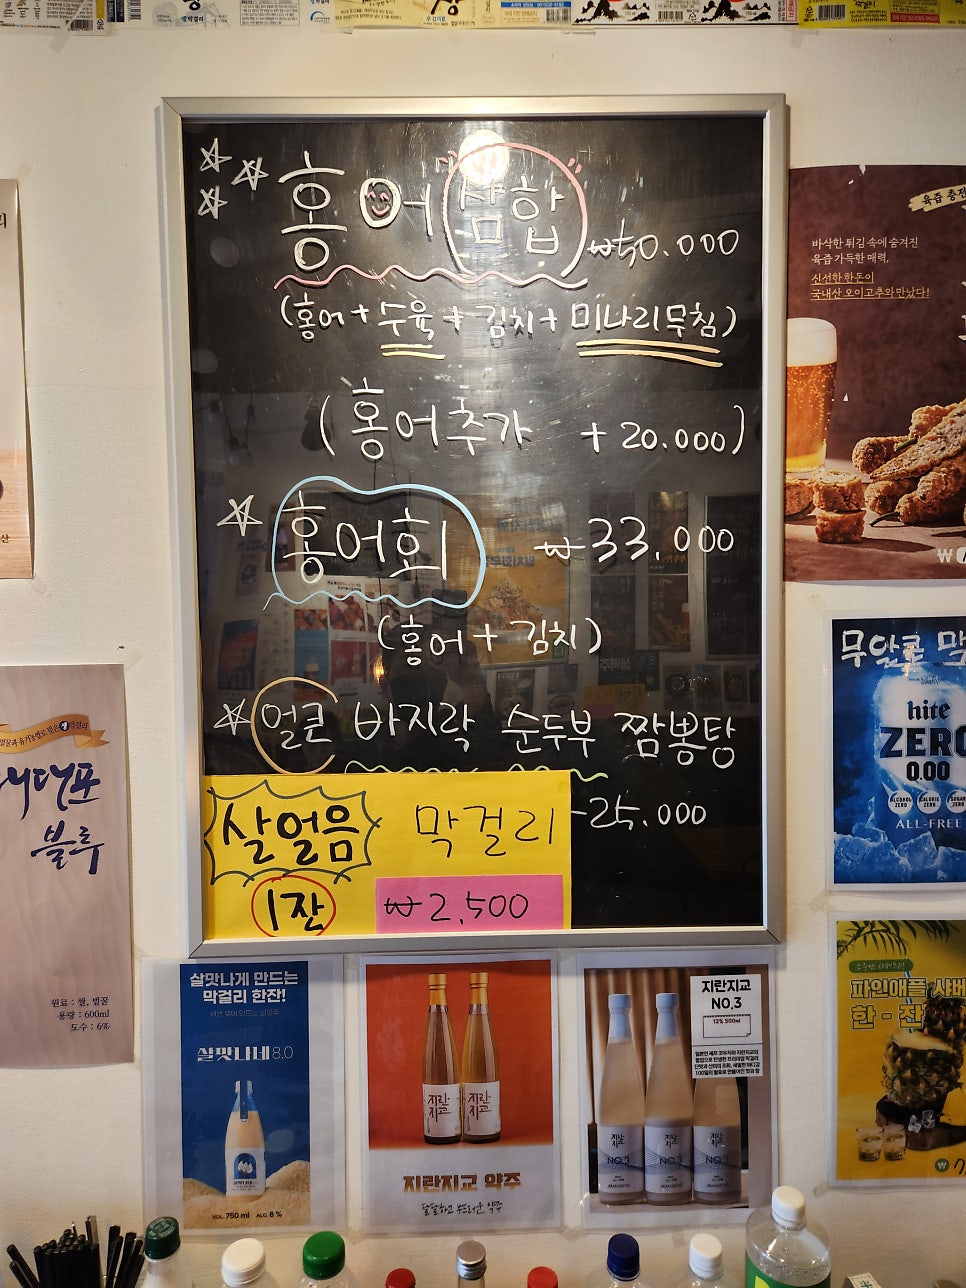 홍어삼합 ₩50.000
(홍어+수육+김치+미나리무침)
(홍어추가 +20.000)
홍어회 ₩33.000
(홍어+김치)
얼큰 바지락 순두부 짬뽕탕
25.000
살얼음 막걸리
1잔 ₩2,500
육즙 충전
바삭한 튀김 속에 숨겨진
육즙 가득한 매력,
신선한 한돈이
국내산 오이고추와 만났다!
hite
ZERO
0.00
ALCOHOL ZERO
CALORIE ZERO
SUGAR
ALL-FREE
파인애플 샤베
한-잔
블루
원료 : 쌀, 벌꿀
용량 : 600ml
도수 : 6%
살맛나게 만드는
막걸리 한잔!
살맛나네 8.0
VOL 750 ml ALC 8 %
지란지교
지란지교
지란지교 약주
달달하고 부드러운 약주
지란지교
NO.3
12% 500ml
NO.3
NO.3
NO.3